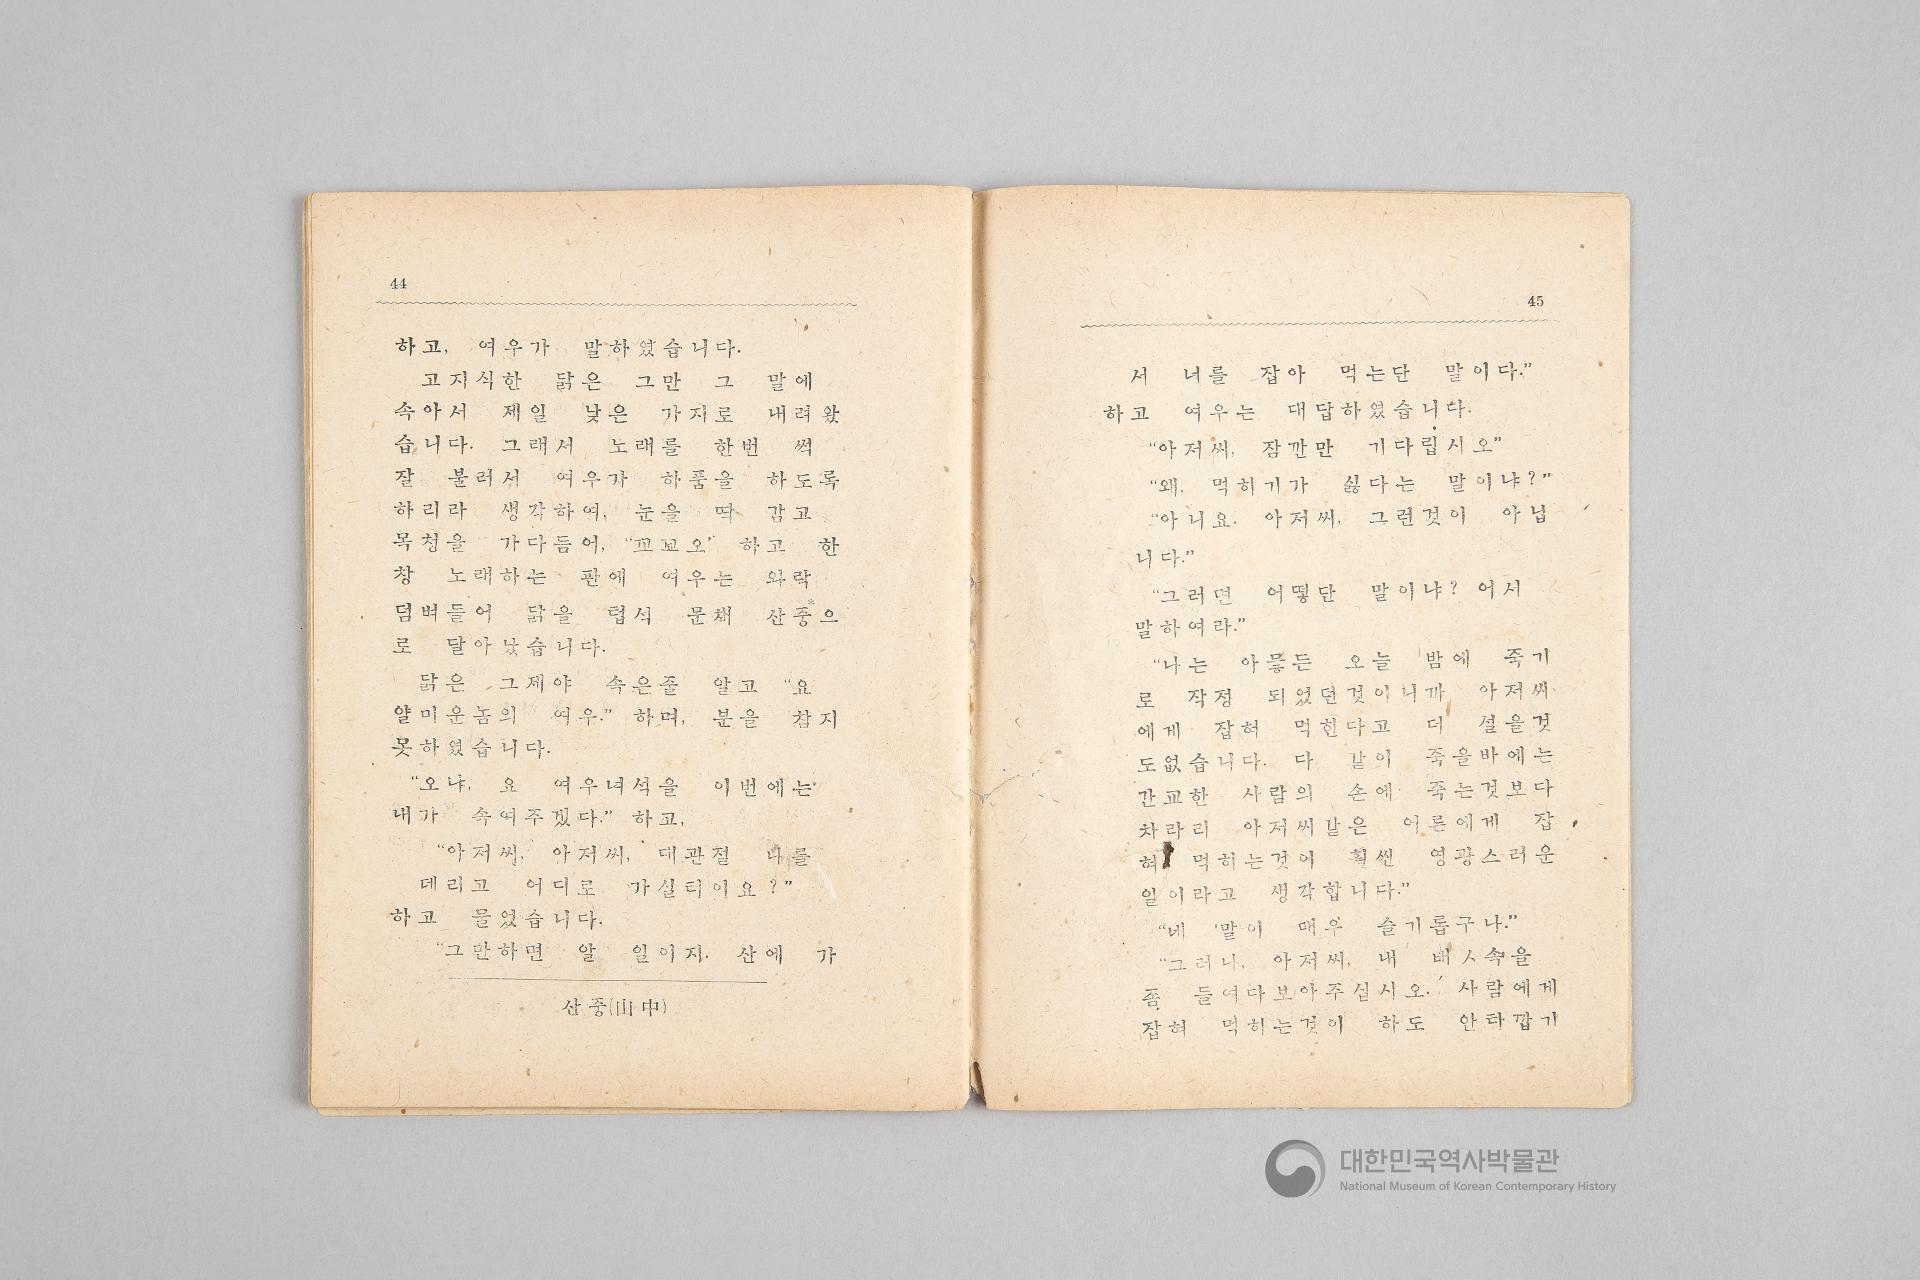 44
하고, 여우가 말하였습니다.
고지식한 닭은 그만 그 말에
속아서 제일 낮은 가지로 내려왔
습니다. 그래서 노래를 한번 썩
잘 불러서 여우가 하품을 하도록
하리라 생각하여, 눈을 딱 감고
목청을 가다듬어, “꼬꾜오” 하고 한
창 노래하는 판에 여우는 와락
덤벼들어 닭을 텁석 문채 산중*으
로 달아났습니다.
닭은 그제야 속은줄 알고 “요
얄미운놈의 여우.” 하며, 분을 참지
못하였습니다.
“오냐, 요 여우녀석을 이번에는
내가 속여주겠다.” 하고,
“아저씨, 아저씨, 대관절 나를
데리고 어디로 가실터이요?”
하고 물었습니다.
“그만하면 알 일이지. 산에 가
산중(山中)
45
서 너를 잡아 먹는단 말이다.”
하고 여우는 대답하였습니다.
“아저씨, 잠깐만 기다립시오”
“왜, 먹히기가 싫다는 말이냐?”
“아니요. 아저씨, 그런것이 아닙
니다.”
“그러면 어떻단 말이냐? 어서
말하여라.”
“나는 아뭏든 오늘 밤에 죽기
로 작정 되었던것이니까 아저씨
에게 잡혀 먹힌다고 더 설을것
도없습니다. 다 같이 죽을바에는
간교한 사람의 손에 죽는것보다
차라리 아저씨같은 어른에게 잡
혀 먹히는것이 훨씬 영광스러운
일이라고 생각합니다.”
“네 말이 매우 슬기롭구나.”
“그러나, 아저씨, 내 배ㅅ속을
좀 들여다보아주십시오. 사람에게
잡혀 먹히는것이 하도 안타깝기
대한민국역사박물관
National Museum of Korean Contemporary History